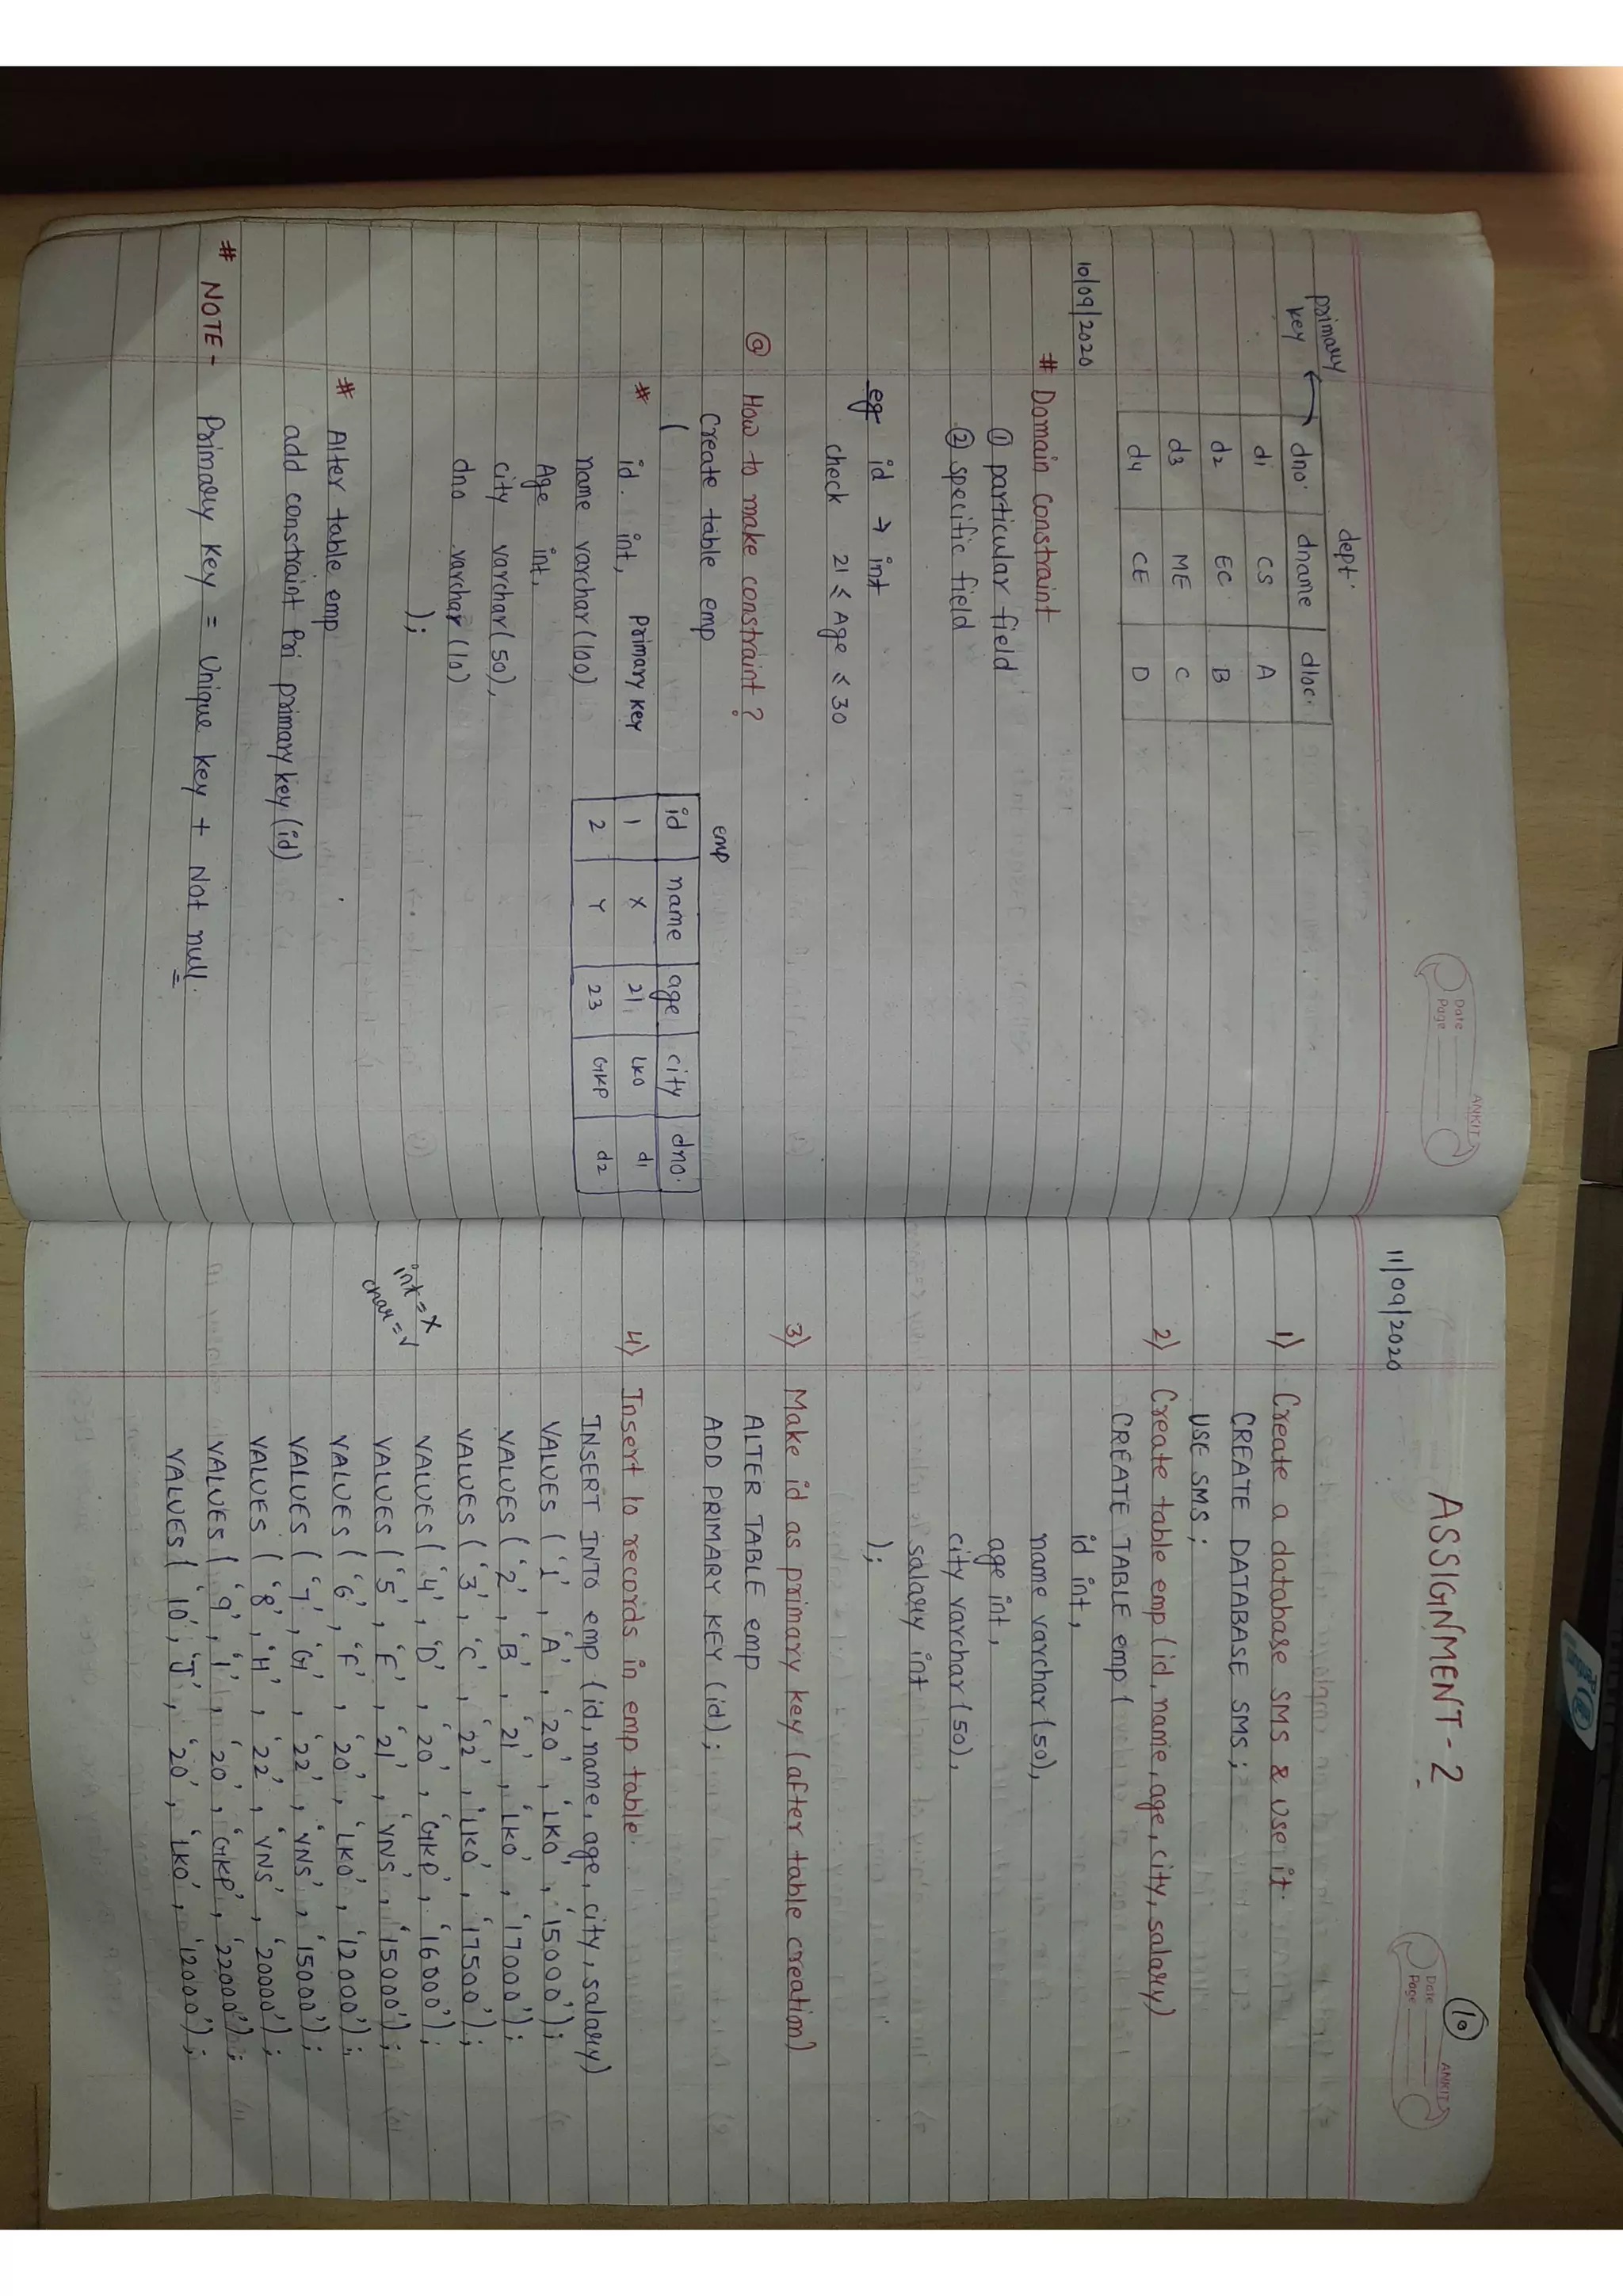 Date
Page
ANKIT
dept.
primary key
dno. dname dloc.
d1 CS A
d2 EC B
d3 ME C
d4 CE D
10/09/2020
# Domain Constraint
① particular field
② specific field
eg id → int
check 21 ≤ Age ≤ 30
@ How to make constraint?
Create table emp
(
# id. int, primary key
name varchar(100)
Age int,
city varchar(50),
dno varchar(10)
);
emp
id name age city dno.
1 X 21 LKO d1
2 Y 23 GKP d2
# Alter table emp
add constraint Pri primary key (id)
# NOTE - Primary key = Unique key + Not null.
10
Date
Page
ANKIT
11/09/2020
ASSIGNMENT-2
1) Create a database SMS & use it.
CREATE DATABASE SMS;
USE SMS;
2) Create table emp (id, name, age, city, salary)
CREATE TABLE emp(
id int,
name varchar(50),
age int,
city varchar(50),
salary int
);
3) Make id as primary key (after table creation)
ALTER TABLE emp
ADD PRIMARY KEY (id);
4) Insert 10 records in emp table.
INSERT INTO emp (id, name, age, city, salary)
VALUES ('1', 'A', '20', 'LKO', '15000');
VALUES ('2', 'B', '21', 'LKO', '17000');
VALUES ('3', 'C', '22', 'LKO', '17500');
int = X
char = √
VALUES ('4', 'D', '20', 'GKP', '16000');
VALUES ('5', 'E', '21', 'VNS', '15000');
VALUES ('6', 'F', '20', 'LKO', '12000');
VALUES ('7', 'G', '22', 'VNS', '15000');
VALUES ('8', 'H', '22', 'VNS', '20000');
VALUES ('9', 'I', '20', 'GKP', '22000');
VALUES ('10', 'J', '20', 'LKO', '12000');